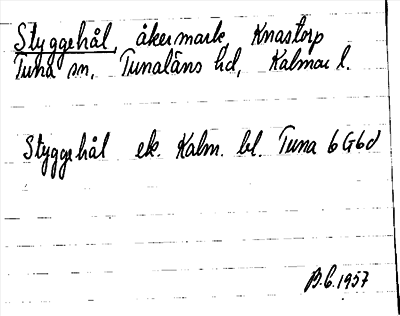 Styggehål, åkermark, Knastorp
Tuna sn, Tunaläns hd, Kalmar l.
Styggehål ek. Kalm. bl. Tuna 6G6d
B.G. 1957